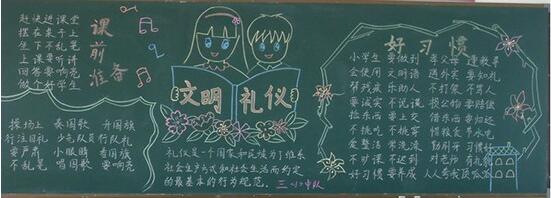 课前准备
赶快进课堂
摆在桌子上
坐下不乱笔
上课要听讲
回答要响亮
做个好学生
操场上 奏国歌 升国旗
行注目礼 少先队员行队礼
要严肃 小眼睛 看国旗
不乱笔 唱国歌 要响亮
文明礼仪
礼仪是一个国家和民族为了维系
社会生产方式和社会生活而约定
的最基本的行为规范。
三、(2)中队
好习惯
小学生 要做到 尊父母 连敬老
会使用 文明语 遇外宾 要知礼
帮残疾 乐助人 不打架 不骂人
要诚实 不说谎 损公物 要赔偿
拾东西 要上交 借东西 要如还
不挑吃 不挑穿 惜粮食 节水电
爱整洁 常洗浇 勤刷牙 习惯好
不旷课 不迟到 对老师 有礼貌
好习惯 要养成 人人夸我顶呱呱